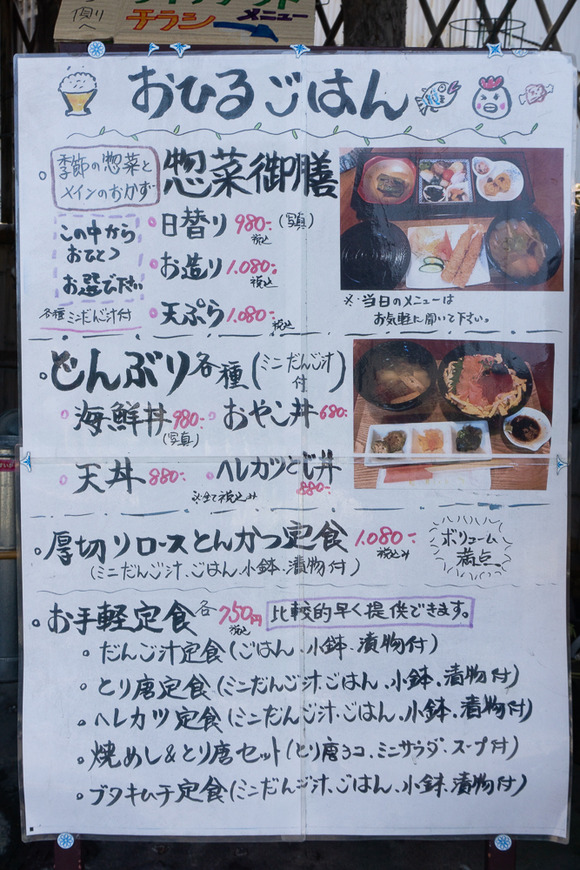 チラシ メニュー
おひるごはん
季節の惣菜と
メインのおかず
惣菜御膳
この中から
おひとつ
お選び下さい
各種ミニだんご汁付
日替り 980- (写真)
税込
お造り 1.080-
税込
天ぷら 1.080-
税込
※当日のメニューは
お気軽に聞いて下さい。
どんぶり各種(ミニだんご汁付)
海鮮丼 980- おやこ丼 680-
(写真)
天丼 880- ヘレカツとじ丼
880-
※全て税込み
厚切りロースとんかつ定食 1.080-
税込み
(ミニだんご汁.ごはん.小鉢.漬物付)
ボリューム
満点
お手軽定食 各750円
税込
比較的早く提供できます。
。だんご汁定食(ごはん、小鉢、漬物付)
。とり唐定食(ミニだんご汁.ごはん、小鉢、漬物付)
。ヘレカツ定食(ミニだんご汁、ごはん、小鉢、漬物付)
。焼めし&とり唐セット(とり唐3コ、ミニサラダ、スープ付)
。ブタキムチ定食(ミニだんご汁、ごはん、小鉢、漬物付)